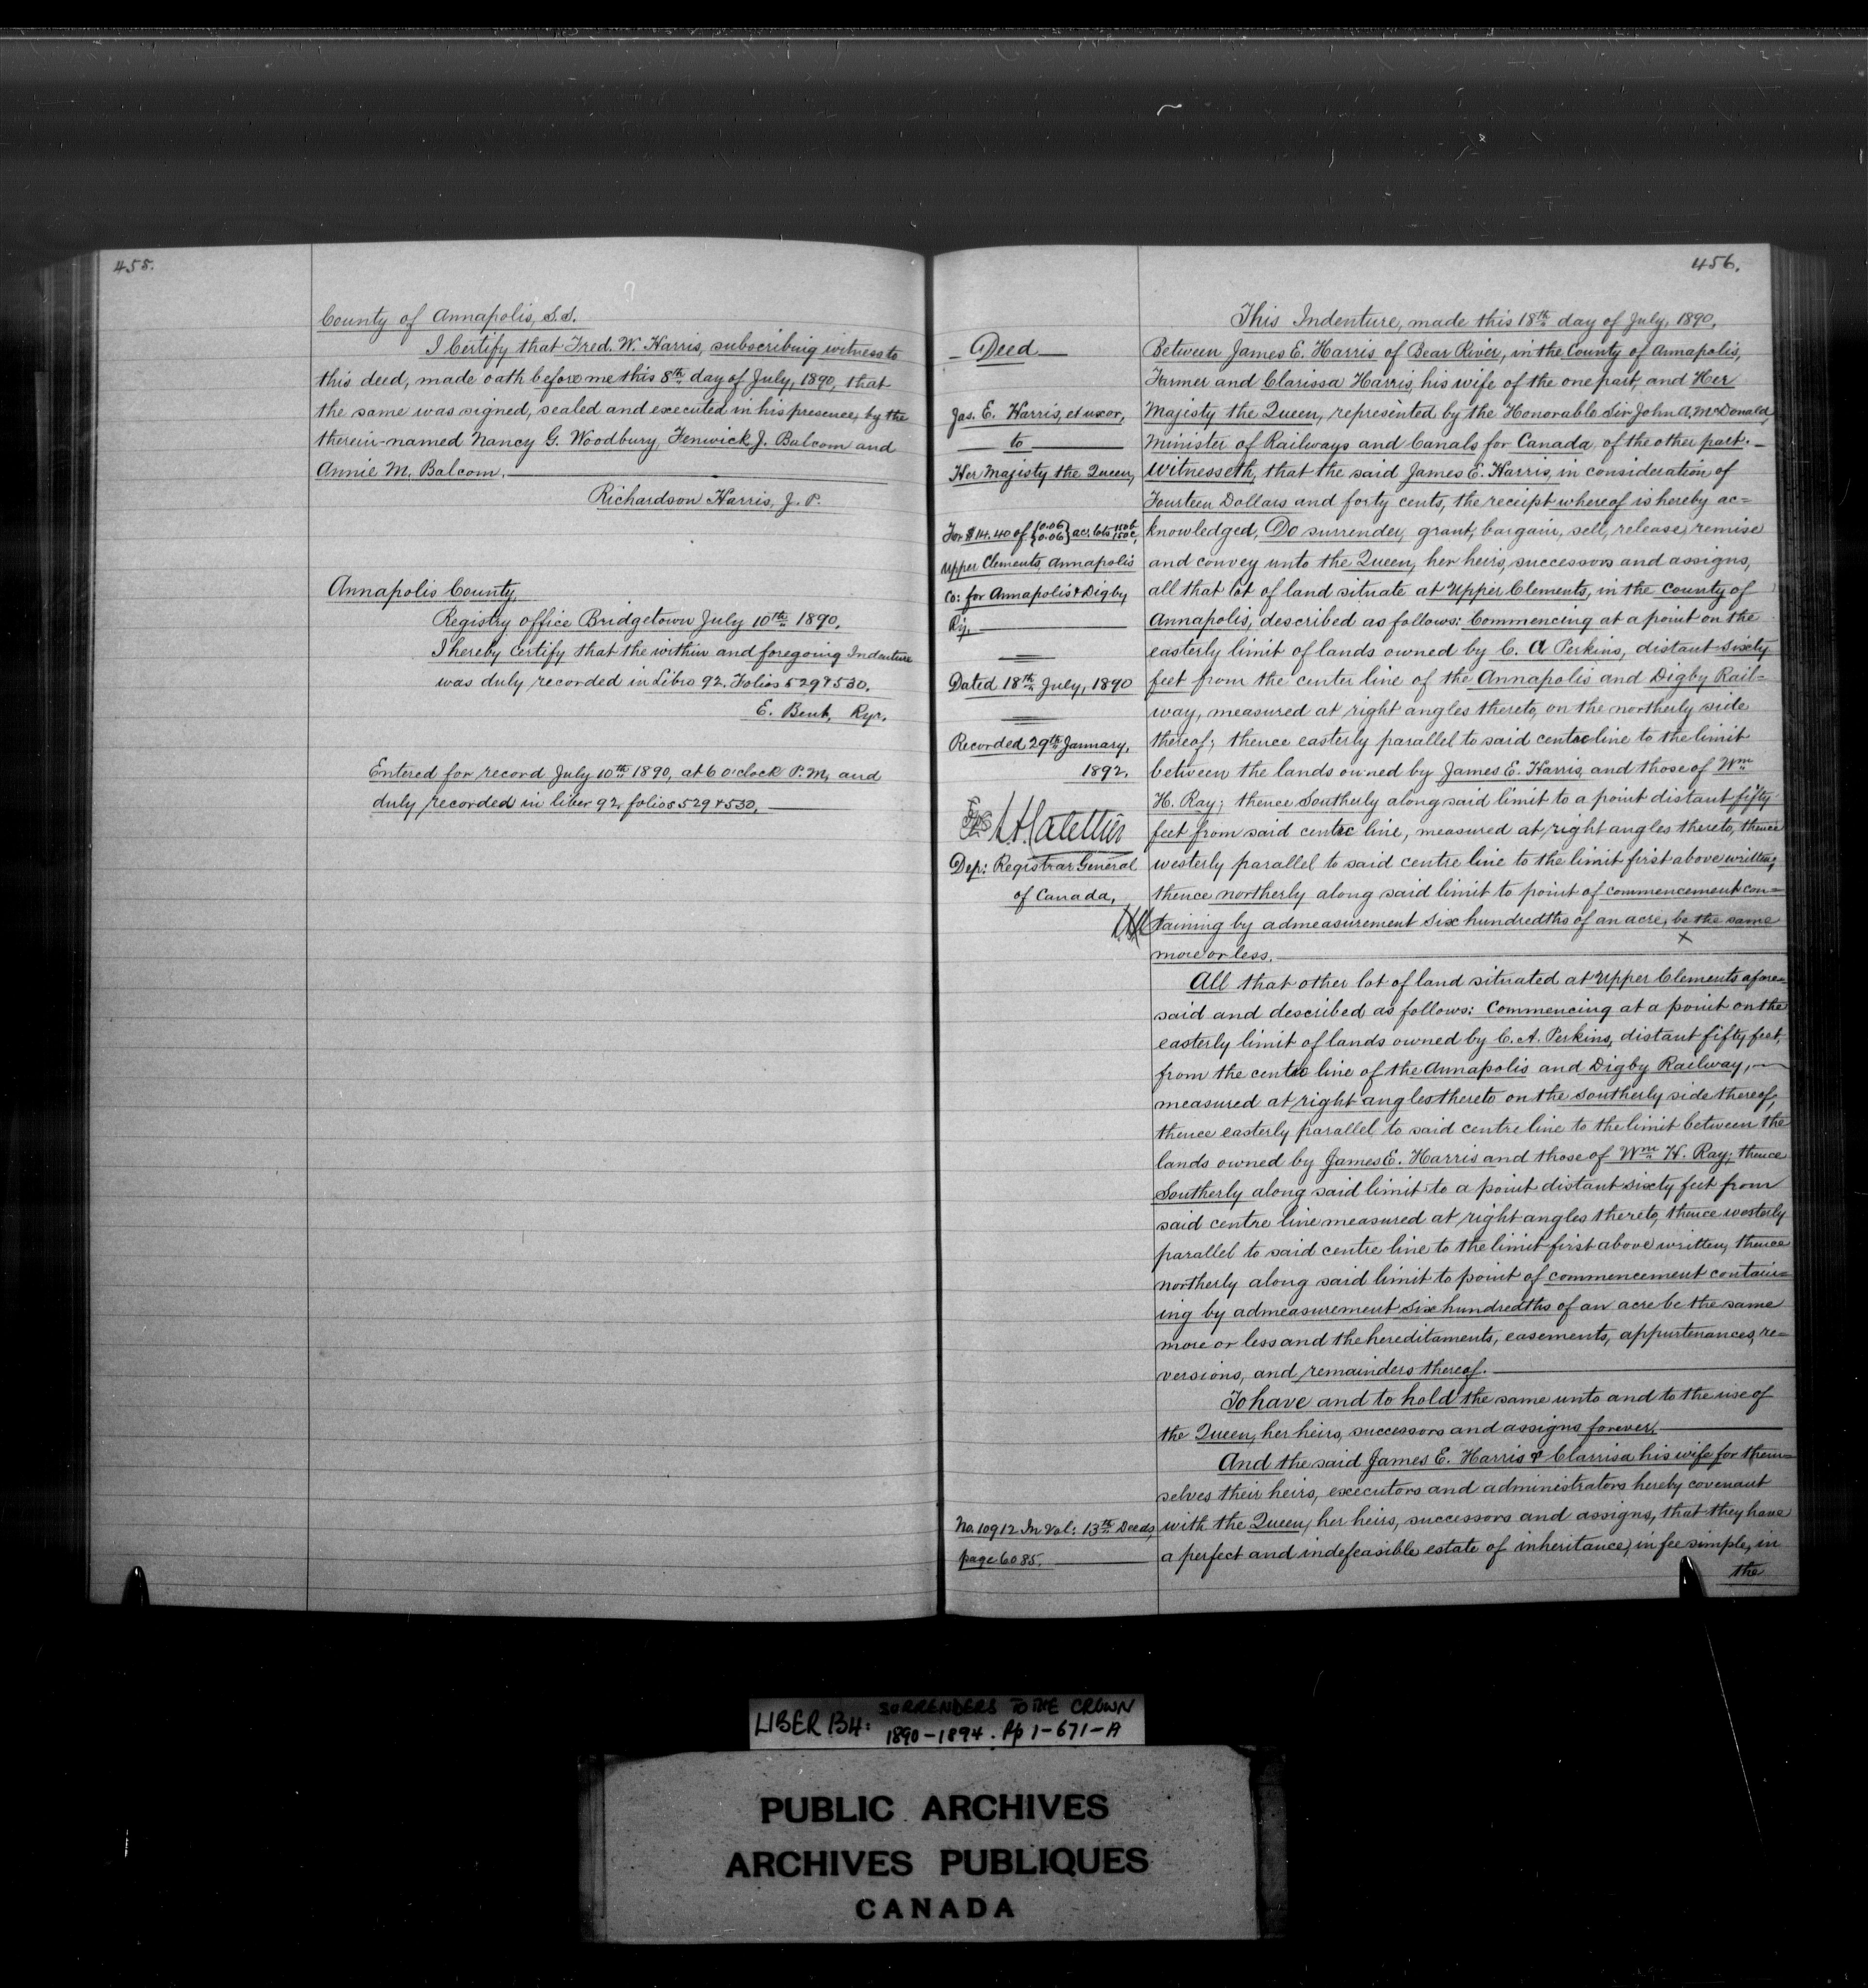 455.
County of Annapolis, S.S.
I Certify that Fred. W. Harris, subscribing witness to
this deed, made oath before me this 8th day of July, 1890, that
the same was signed, sealed and executed in his presence, by the
therein-named Nancy G. Woodbury, Fenwick J. Balcom and
Annie M. Balcom.
Richardson Harris, J. P.
Annapolis County,
Registry office Bridgetown July 10th 1890.
I hereby Certify that the within and foregoing Indenture
was duly recorded in Libro 92. Folios 529 & 530.
E. Bent, Rgr.
Entered for record July 10th 1890, at 6 o'clock P.M, and
duly recorded in liber 92 folios 529 & 530,
456.
Deed
Jas. E. Harris, et uxor,
to
Her Majesty the Queen,
For $14.40 of {0.06 0.06} ac. lots 150b 150c,
Upper Clements, Annapolis
Co: for Annapolis & Digby
Ry.
Dated 18th July, 1890
Recorded 29th January,
1892.
Dep: Registrar General
of Canada,
No. 10912 In Vol: 13th Deeds,
page 6085.
This Indenture, made this 18th day of July, 1890,
Between James E. Harris of Bear River, in the County of Annapolis,
Farmer and Clarissa Harris, his wife of the one part, and Her
Majesty the Queen, represented by the Honorable Sir John A. McDonald,
Minister of Railways and Canals for Canada, of the other part. —
Witnesseth, that the said James E. Harris, in consideration of
Fourteen Dollars and forty cents, the receipt whereof is hereby ac=
knowledged, Do surrender, grant, bargain, sell, release, remise
and convey unto the Queen, her heirs, successors and assigns,
all that lot of land situate at Upper Clements, in the County of
Annapolis, described as follows: Commencing at a point on the
easterly limit of lands owned by C. A Perkins, distant sixty
feet from the center line of the Annapolis and Digby Rail=
way, measured at right angles thereto, on the northerly side
thereof; thence easterly parallel to said centre line to the limit
between the lands owned by James E. Harris, and those of Wm
H. Ray; thence Southerly along said limit to a point distant fifty
feet from said centre line, measured at right angles thereto, thence
westerly parallel to said centre line to the limit first above written;
thence northerly along said limit to point of commencement con=
taining by admeasurement six hundredths of an acre, be the same
more or less.
All that other lot of land situated at Upper Clements afore=
said and described as follows: Commencing at a point on the
easterly limit of lands owned by C. A. Perkins, distant fifty feet,
from the centre line of the Annapolis and Digby Railway, —
measured at right angles thereto on the Southerly side thereof,
thence easterly parallel to said centre line to the limit between the
lands owned by James E. Harris and those of Wm H. Ray; thence
Southerly along said limit to a point distant sixty feet from
said centre line measured at right angles thereto, thence westerly
parallel to said centre line to the limit first above written, thence
northerly along said limit to point of commencement contain=
ing by admeasurement six hundredths of an acre be the same
more or less and the hereditaments, easements, appurtenances, re=
versions, and remainders thereof.
To have and to hold the same unto and to the use of
the Queen, her heirs, successors and assigns forever.
And the said James E. Harris & Clarrisa his wife for them=
selves their heirs, executors and administrators hereby covenant
with the Queen, her heirs, successors and assigns, that they have
a perfect and indefeasible estate of inheritance, in fee simple, in
the
LIBER 134: SURRENDERS TO THE CROWN
1890-1894. Pp 1-671-A
PUBLIC ARCHIVES
ARCHIVES PUBLIQUES
CANADA